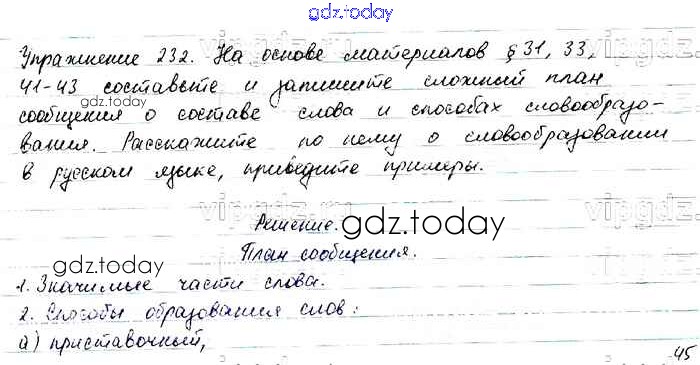 gdz.today
Упражнение 232. На основе материалов § 31, 33,
41-43 составьте и запишите сложный план
gdz.today
сообщения о составе слова и способах словообразо-
вания. Расскажите по нему о словообразовании
в русском языке, приведите примеры.
vipgdz.ru
Решение.
gdz.today
План сообщения.
gdz.today
1. Значимые части слова.
2. Способы образования слов:
а) приставочный,
45